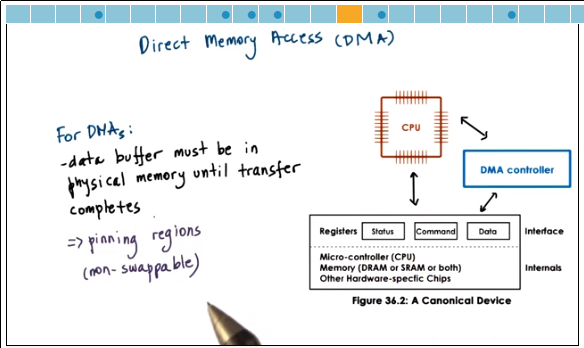 Direct Memory Access (DMA)
For DMAs:
-data buffer must be in
physical memory until transfer
completes
=> pinning regions
(non-swappable)
CPU
DMA controller
Registers Status Command Data Interface
Micro-controller (CPU)
Memory (DRAM or SRAM or both) Internals
Other Hardware-spectic Chips
Figure 36.2: A Canonical Device